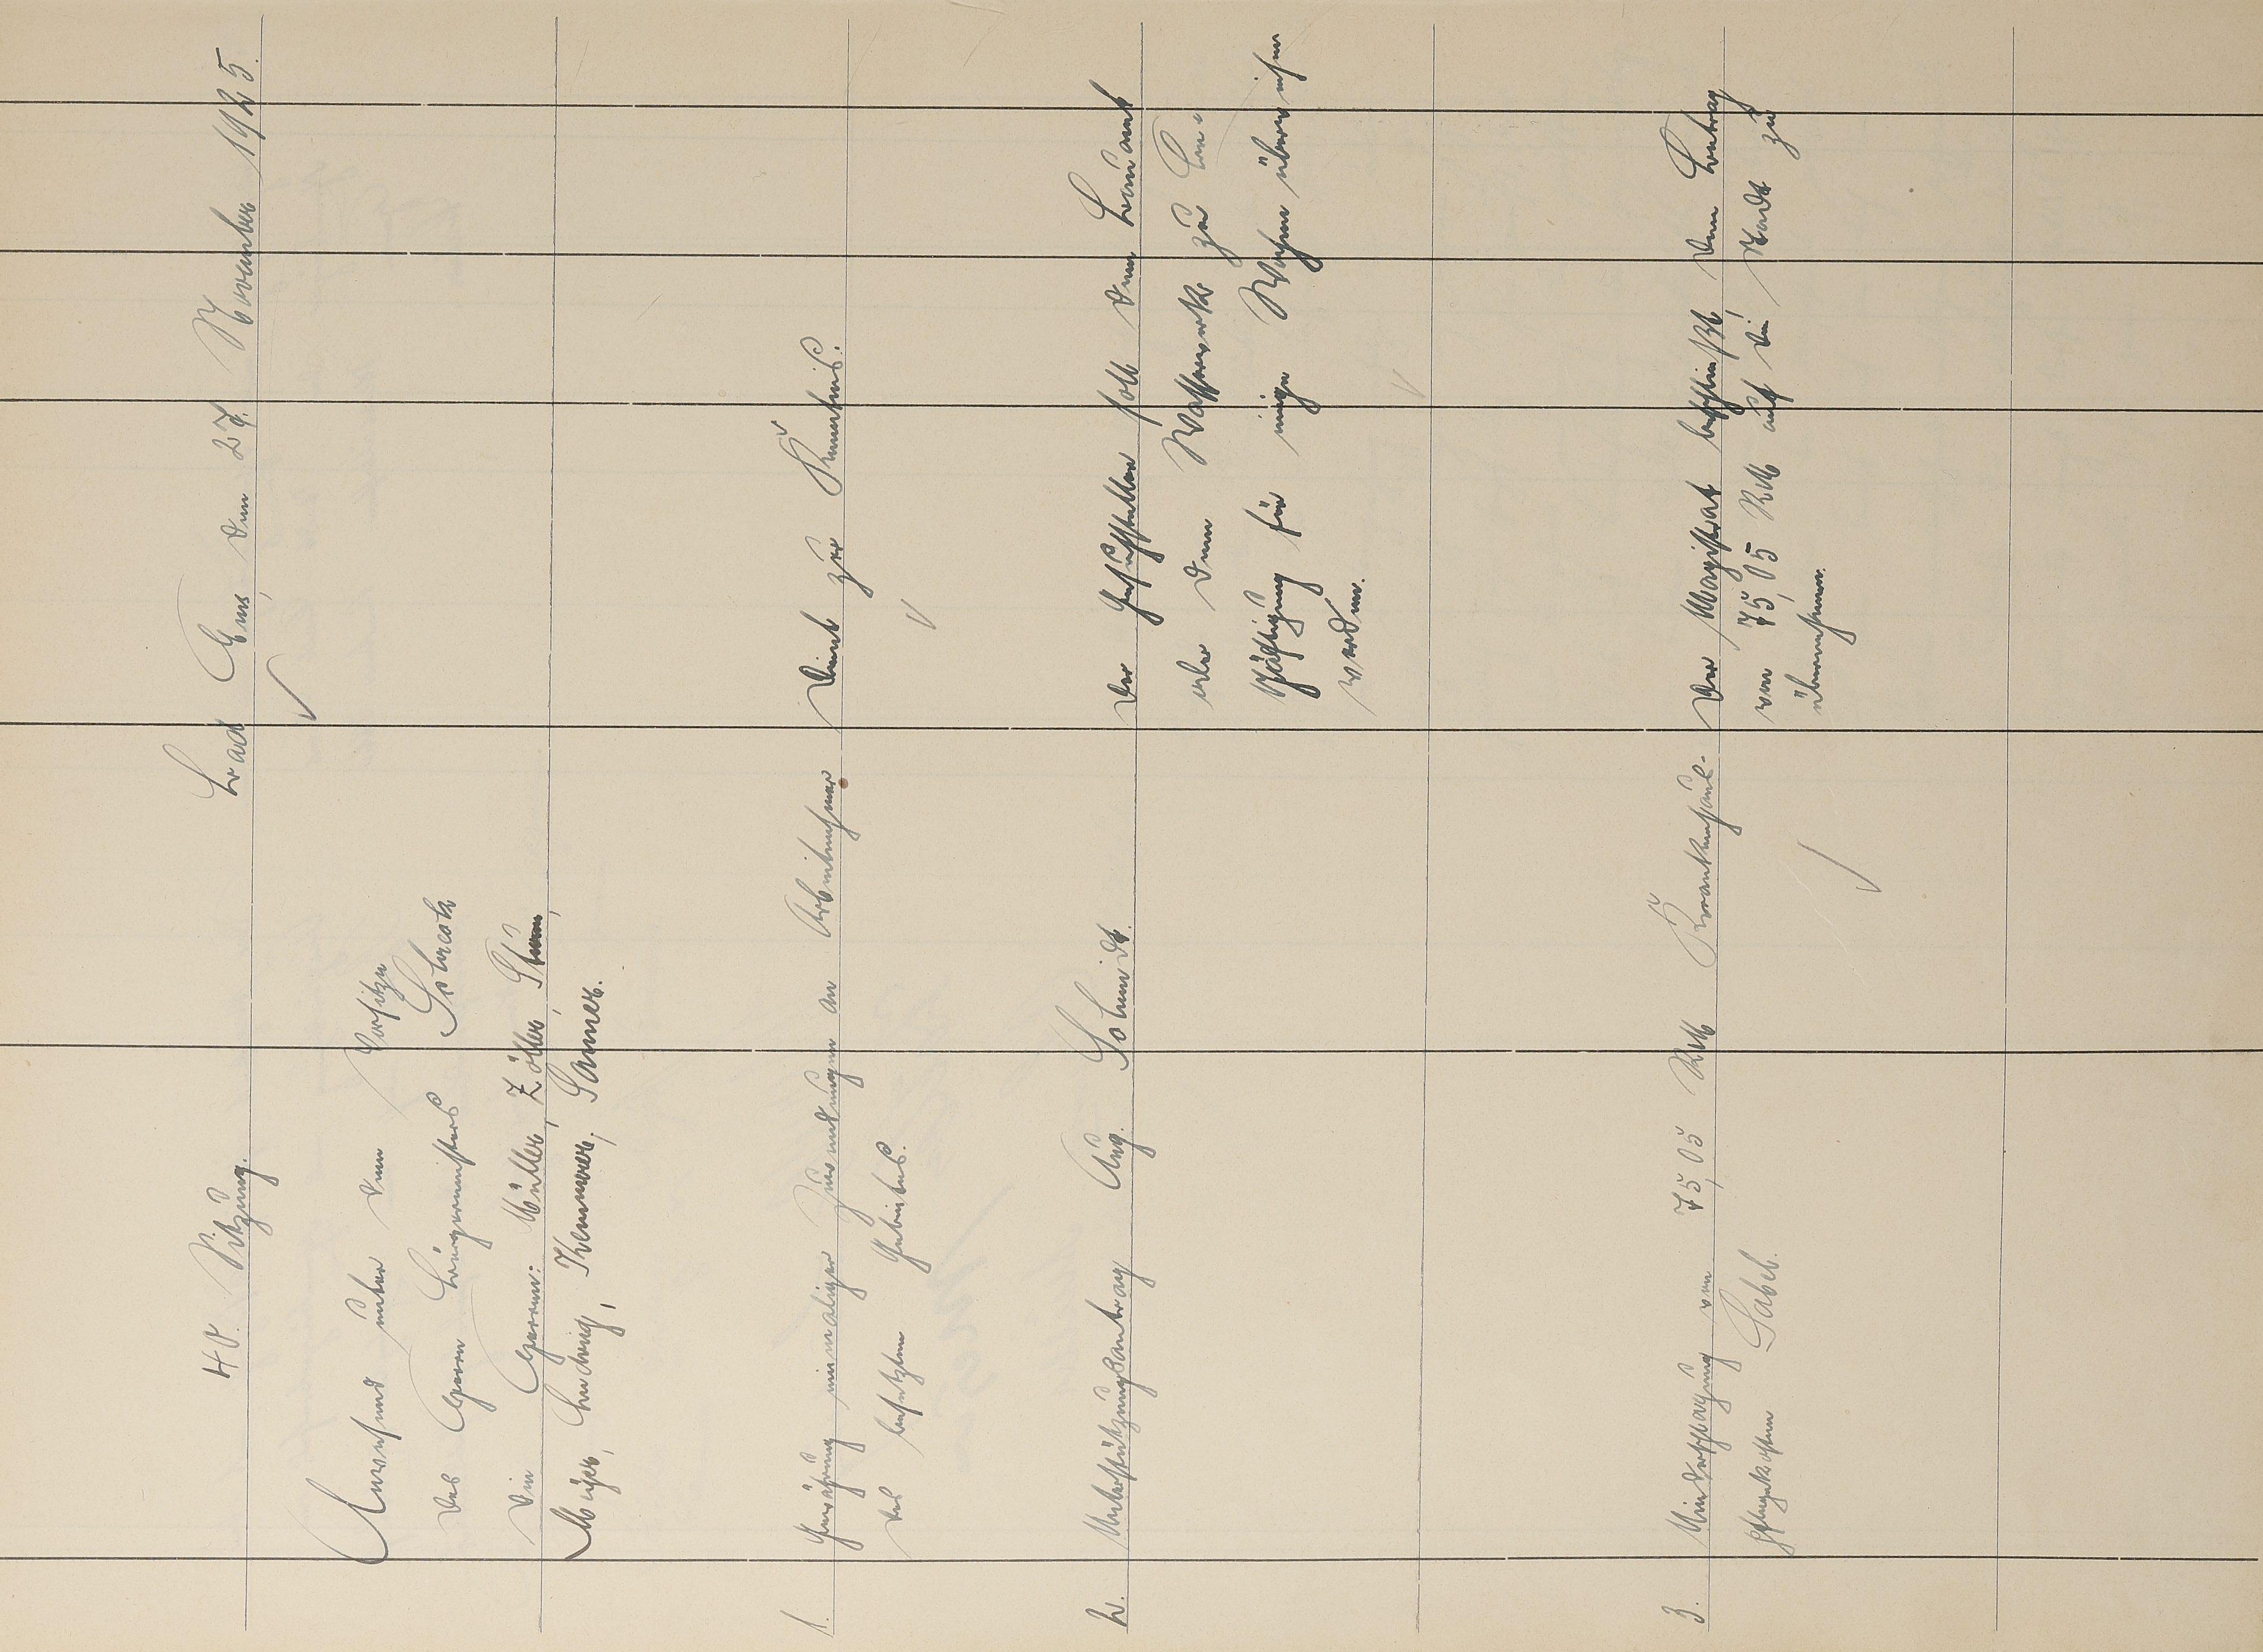 40. Sitzung.
Bad Ems, den 27. November 1925.
Anwesend unter dem Vorsitze
des Herrn Bürgermeisters Schreck
die Herren: Müller, Zöller, Thum,
Meyer, Ludwig, Kemmerer, Sames.
1. Gewährung einmaliger Zuwendungen an Arbeitnehmer
des besetzten Gebietes.
Dient zur Kenntnis.
2. Unterstützungsantrag Aug. Schmidt.
Der Gesuchsteller soll dem Bauamt
oder dem Wasserwerke zur Be-
schäftigung für einige Wochen überwiesen
werden.
3. Niederschlagung von 75,05 RM Krankenhaus-
pflegekosten Sabel.
Der Magistrat beschließt, den Betrag
von 75,05 RM auf die Stadt zu
übernehmen.